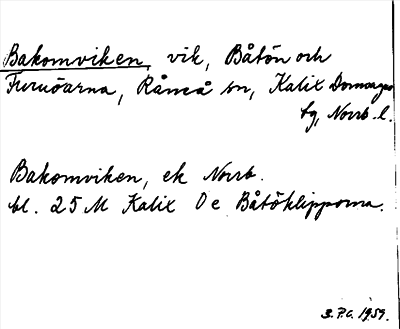 Bakomviken, vik, Båtön och
Furuöarna, Råneå sn, Kalix Domsagas
tg, Norrb. l.
Bakomviken, ek Norrb.
bl. 25 M Kalix O e Båtöklipporna.
1959.